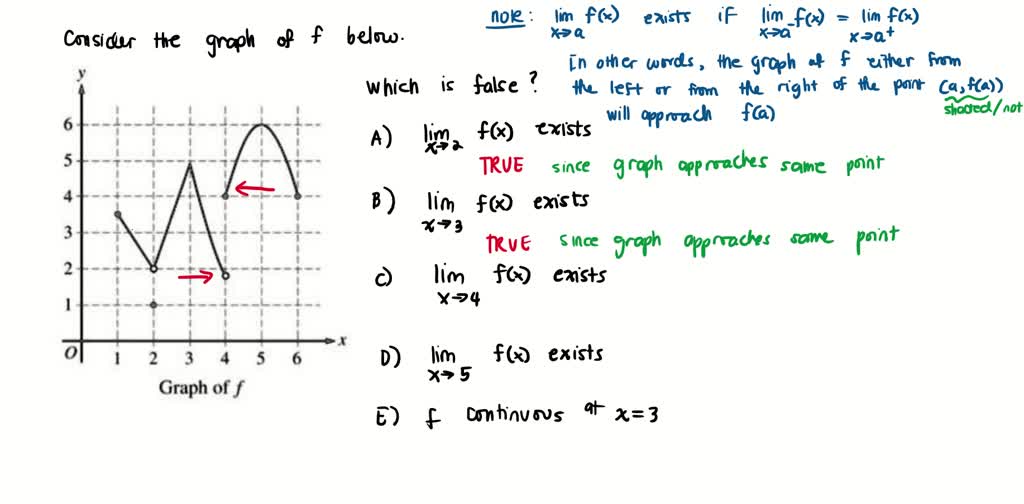 Consider the graph of f below.
note: lim x→a f(x) exists if lim x→a⁻ f(x) = lim x→a⁺ f(x)
In other words, the graph of f either from
the left or from the right of the point (a, f(a))
shaded/not
will approach f(a)
which is false?
A) lim x→2 f(x) exists
TRUE since graph approaches same point
B) lim x→3 f(x) exists
TRUE since graph approaches same point
C) lim x→4 f(x) exists
D) lim x→5 f(x) exists
E) f continuous at x=3
y
6
5
4
3
2
1
O 1 2 3 4 5 6 x
Graph of f